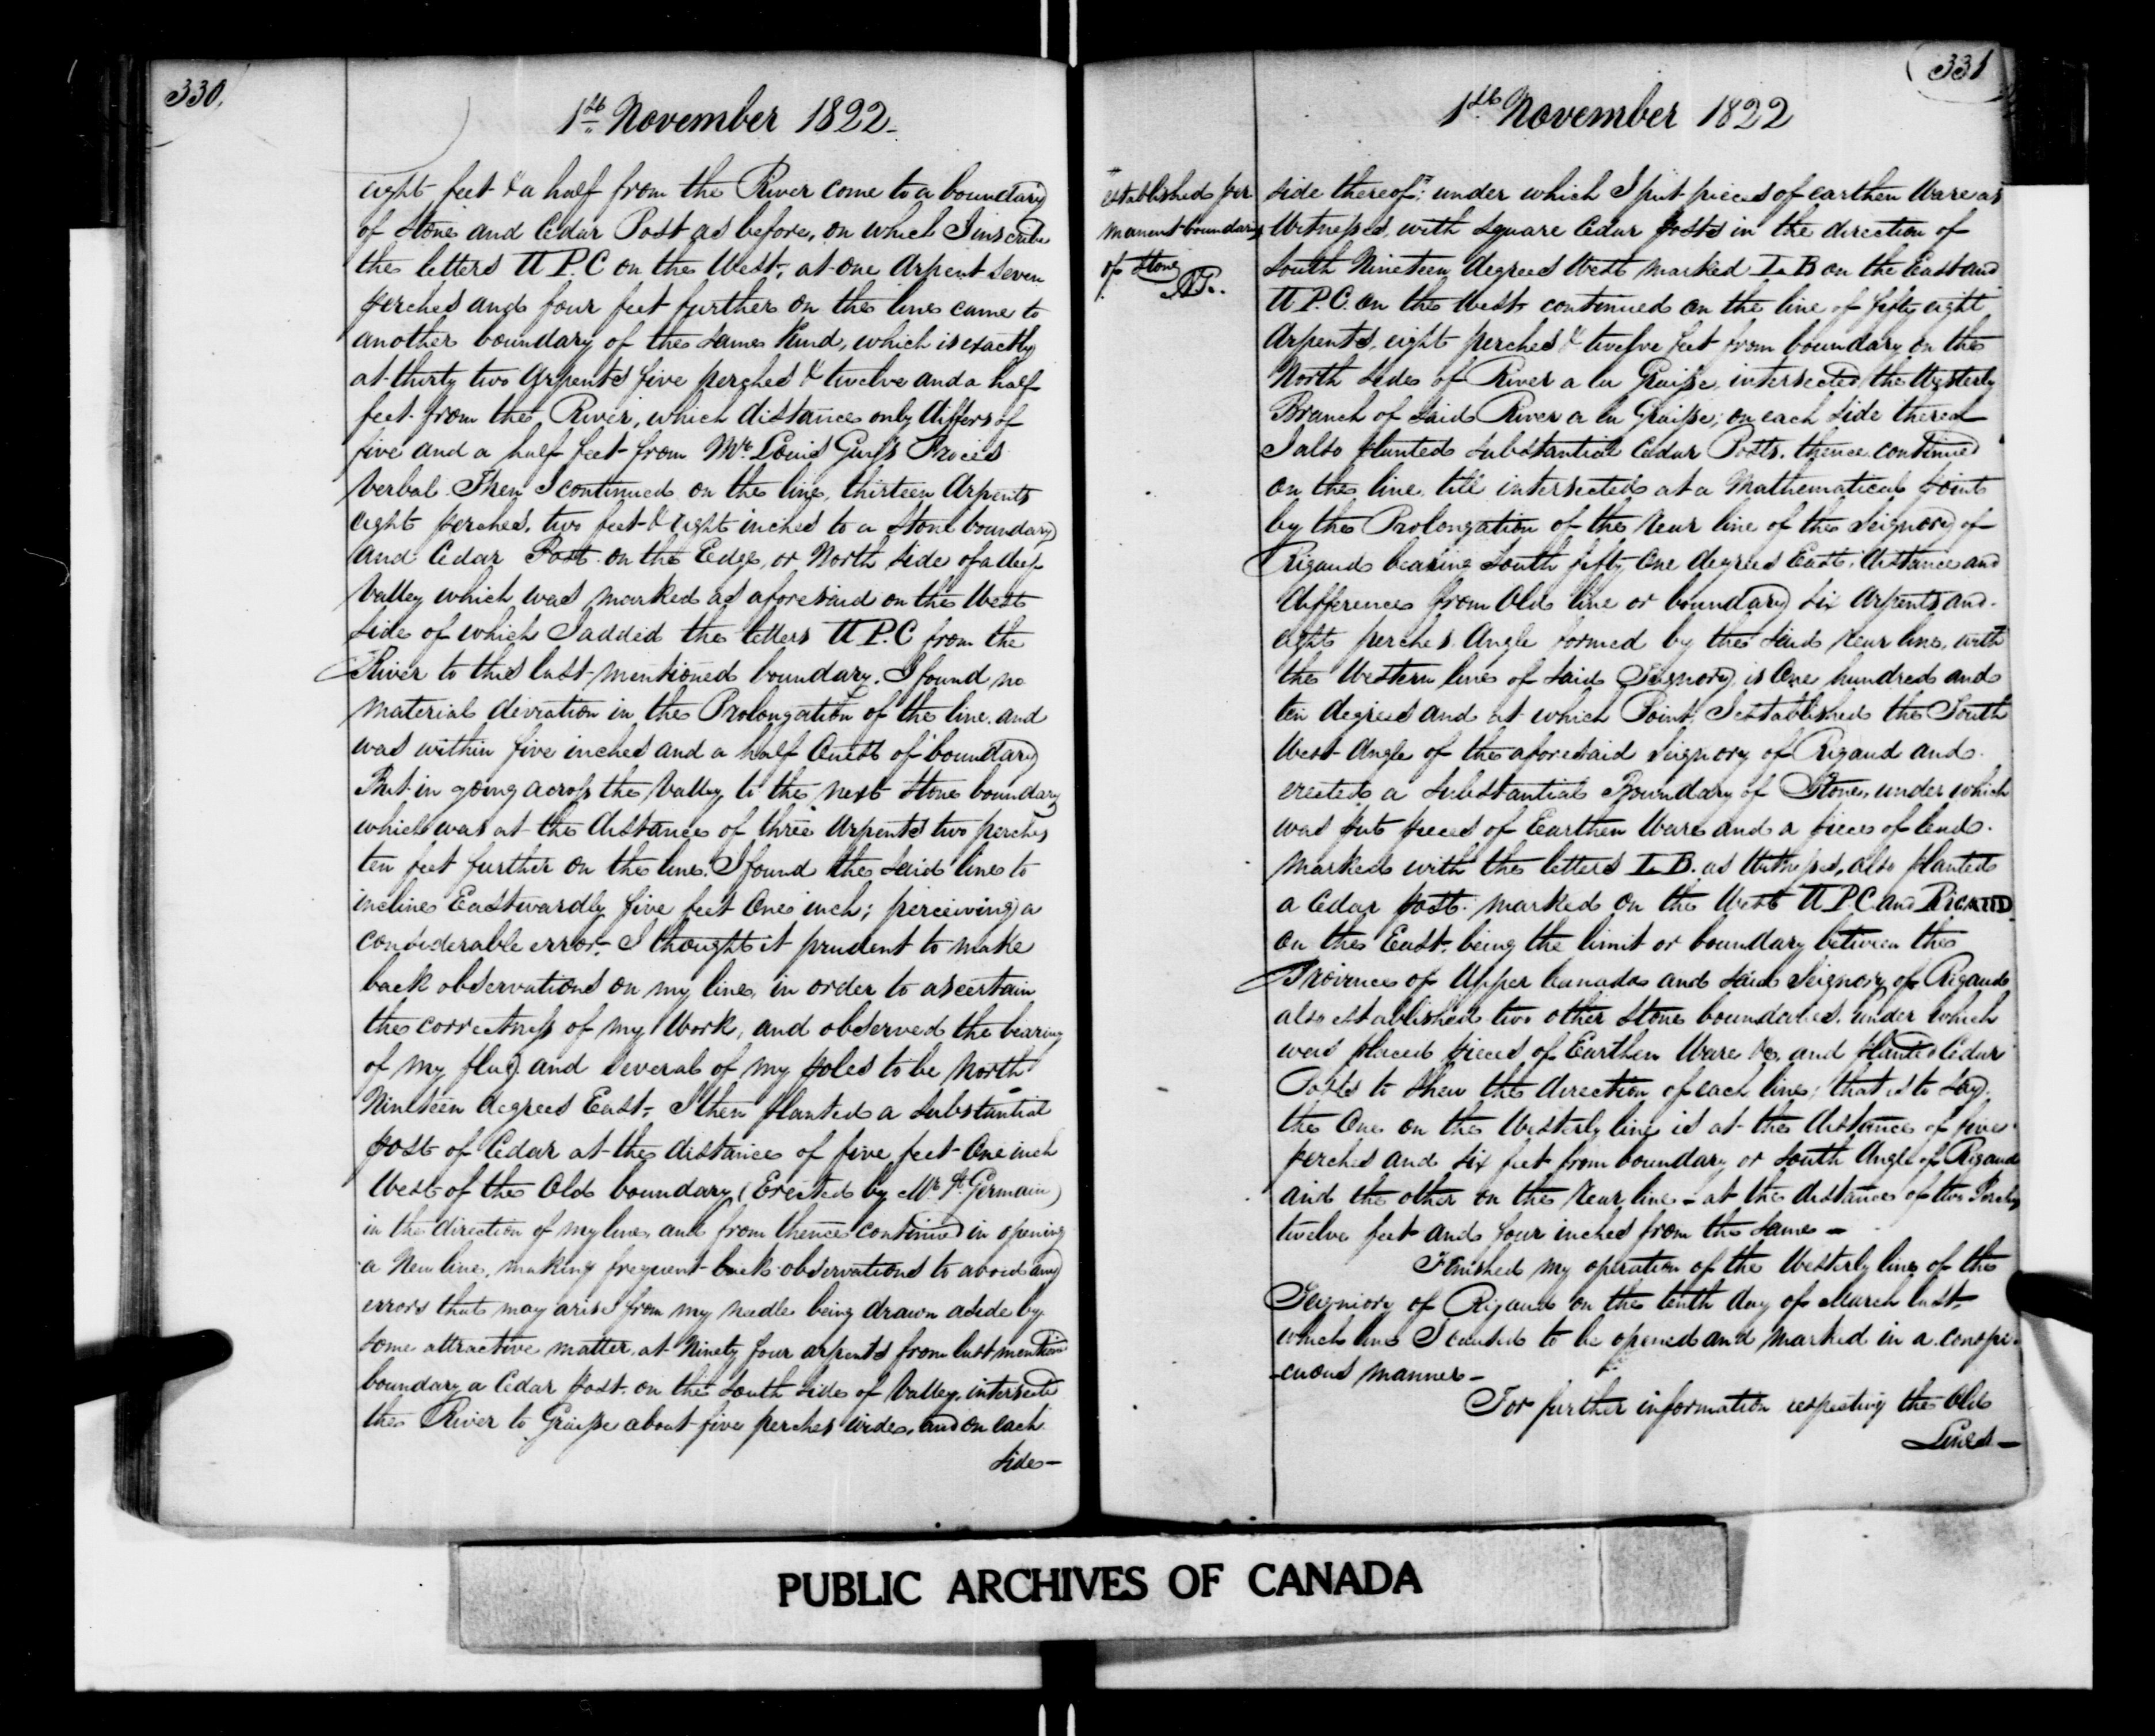 330.
1st November 1822.
eight feet & a half from the River come to a boundary
of Stone and Cedar Post as before, on which I inscribe
the letters U P. C on the West, at one Arpent seven
perches and four feet further on the line came to
another boundary of the same kind, which is exactly
at thirty two Arpents five perches & twelve and a half
feet from the River, which distance only differs of
five and a half feet from Mr. Louis Guy's Procès
Verbal. Then I continued on the line, thirteen Arpents
eight perches, two feet & eight inches to a Stone boundary
and Cedar Post on the Edge, or North side of a deep
Valley which was marked as aforesaid on the West
side of which I added the letters U P. C from the
River to this last mentioned boundary. I found no
material deviation in the Prolongation of the line and
was within five inches and a half of boundary
But in going across the Valley to the next Stone boundary
which was at the distance of three Arpents two perches
ten feet further on the line. I found the said line to
incline Eastwardly five feet One inch; perceiving a
considerable error, I thought it prudent to make
back observations on my line, in order to ascertain
the correctness of my Work, and observed the bearing
of my flag and several of my poles to be North
Nineteen degrees East. I then planted a substantial
post of Cedar at the distance of five feet One inch
West of the Old boundary (Erected by Mr. St. Germain)
in the direction of my line, and from thence continued in opening
a New line, making frequent back observations to avoid any
errors that may arise from my needle being drawn aside by
some attractive matter, at Ninety four arpents from last mention
boundary a Cedar post on the South side of Valley, intersects
the River la Graisse about five perches wide, and on each
side—
331
1st November 1822
established per
manent boundaries
of Stone
side thereof; under which I put pieces of earthen Ware as
Witnesses, with square Cedar posts in the direction of
South Nineteen degrees West marked L B on the East and
U P. C. on the West continued on the line of fifty eight
Arpents, eight perches & twelve feet from boundary on the
North side of River a la Graisse, intersected the Westerly
Branch of said River a la Graisse, on each side thereof
I also planted substantial Cedar Posts, thence continued
on the line, till intersected at a Mathematical point
by the Prolongation of the rear line of the Seignory of
Rigaud bearing South fifty One degrees East, distance and
difference from Old line or boundary six Arpents and
eight perches Angle formed by the said rear line, with
the Western line of said Seignory is One hundred and
ten degrees and at which Point, I established the South
West Angle of the aforesaid Seignory of Rigaud and
erected a substantial Boundary of Stones, under which
was put pieces of Earthen Ware and a piece of lead
marked with the letters L B. as Witnesses, also planted
a Cedar post marked on the West U P. C and RIGAUD
on the East, being the limit or boundary between the
Province of Upper Canada and said Seignory of Rigaud
also established two other Stone boundaries, under which
was placed pieces of Earthen Ware &c. and planted Cedar
Posts to shew the direction of each line; that is to say
the One on the Westerly line is at the distance of five
perches and six feet from boundary or South Angle of Rigaud
and the other on the rear line — at the distance of two Perches
twelve feet and four inches from the same —
Finished my operation of the Westerly line of the
Seigniory of Rigaud on the tenth day of March last,
which line I caused to be opened and marked in a conspi-
-cuous manner —
For further information respecting the Old
Lines —
PUBLIC ARCHIVES OF CANADA